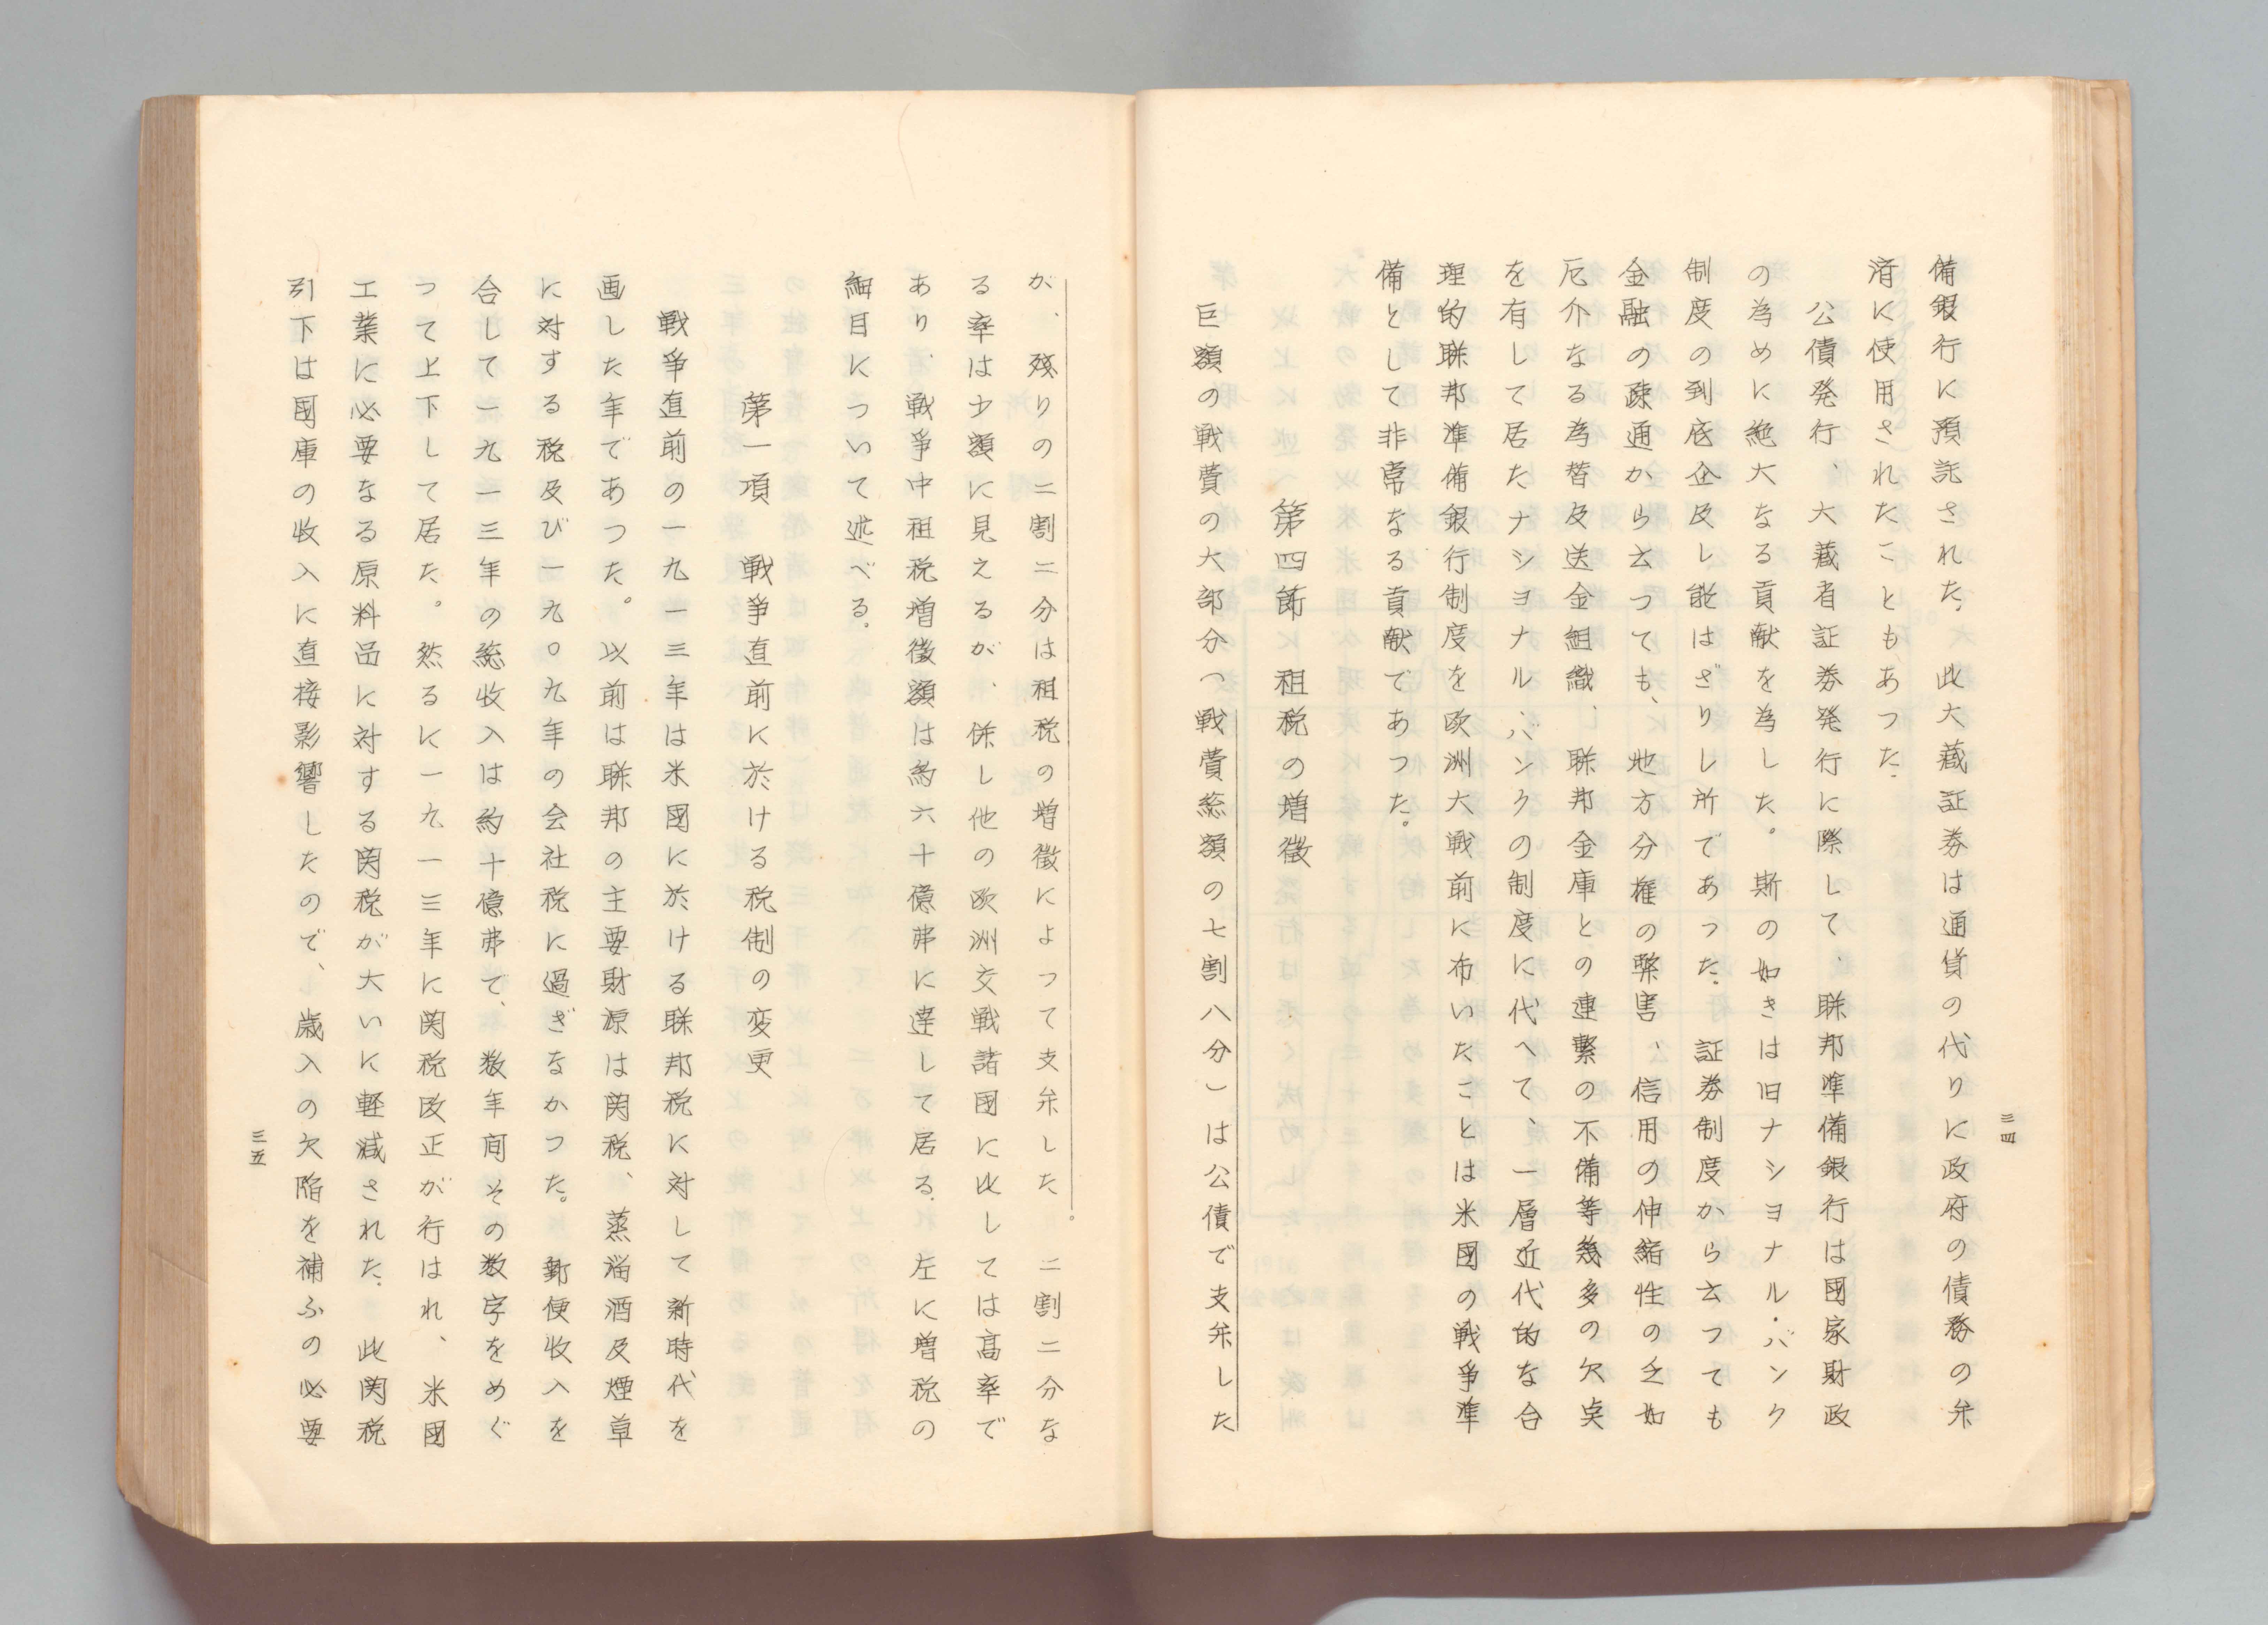 備銀行に預託された。此大蔵証券は通貨の代りに政府の債務の弁
済に使用されたこともあつた。
公債発行、大蔵省証券発行に際して、聯邦準備銀行は國家財政
の為めに絶大なる貢献を為した。斯の如きは旧ナシヨナル・バンク
制度の到底企及し能はざりし所であつた。証券制度から云つても
金融の疎通から云つても、地方分権の弊害、信用の伸縮性の乏如
厄介なる為替及送金組織、聯邦金庫との連繋の不備等幾多の欠点
を有して居たナシヨナル、バンクの制度に代へて、一層近代的な合
理的聯邦準備銀行制度を欧洲大戦前に布いたことは米國の戦争準
備として非常なる貢献であつた。
第四節 租税の増徴
巨額の戦費の大部分(戦費総額の七割八分)は公債で支弁した
三四
が、残りの二割二分は租税の増徴によつて支弁した。二割二分な
る率は少額に見えるが、併し他の欧洲交戦諸國に比しては高率で
あり、戦争中租税増徴額は約六十億弗に達して居る。左に増税の
細目について述べる。
第一項 戦争直前に於ける税制の変更
戦争直前の一九一三年は米國に於ける聯邦税に対して新時代を
画した年であつた。以前は聯邦の主要財源は関税、蒸溜酒及煙草
に対する税及び一九〇九年の会社税に過ぎなかつた。郵便收入を
合して一九一三年の総收入は約十億弗で、数年間その数字をめぐ
つて上下して居た。然るに一九一三年に関税改正が行はれ、米國
工業に必要なる原料品に対する関税が大いに軽減された。此関税
引下は國庫の收入に直接影響したので、歳入の欠陥を補ふの必要
三五